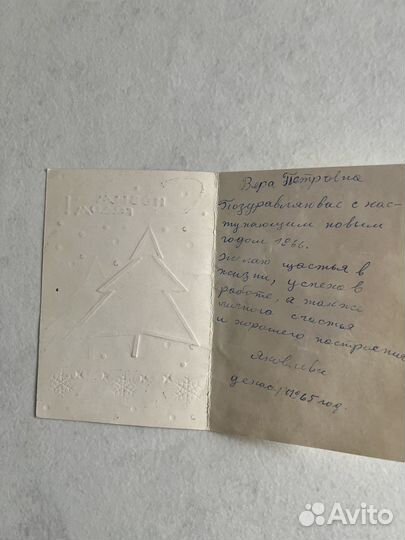 Вера Петровна
Поздравляю вас с нас-
тупающим новым
годом 1966.
Желаю щастья в
жизни, успеха в
работе, а также
личного счастья
и хорошего настроения
1965 год.
Avito